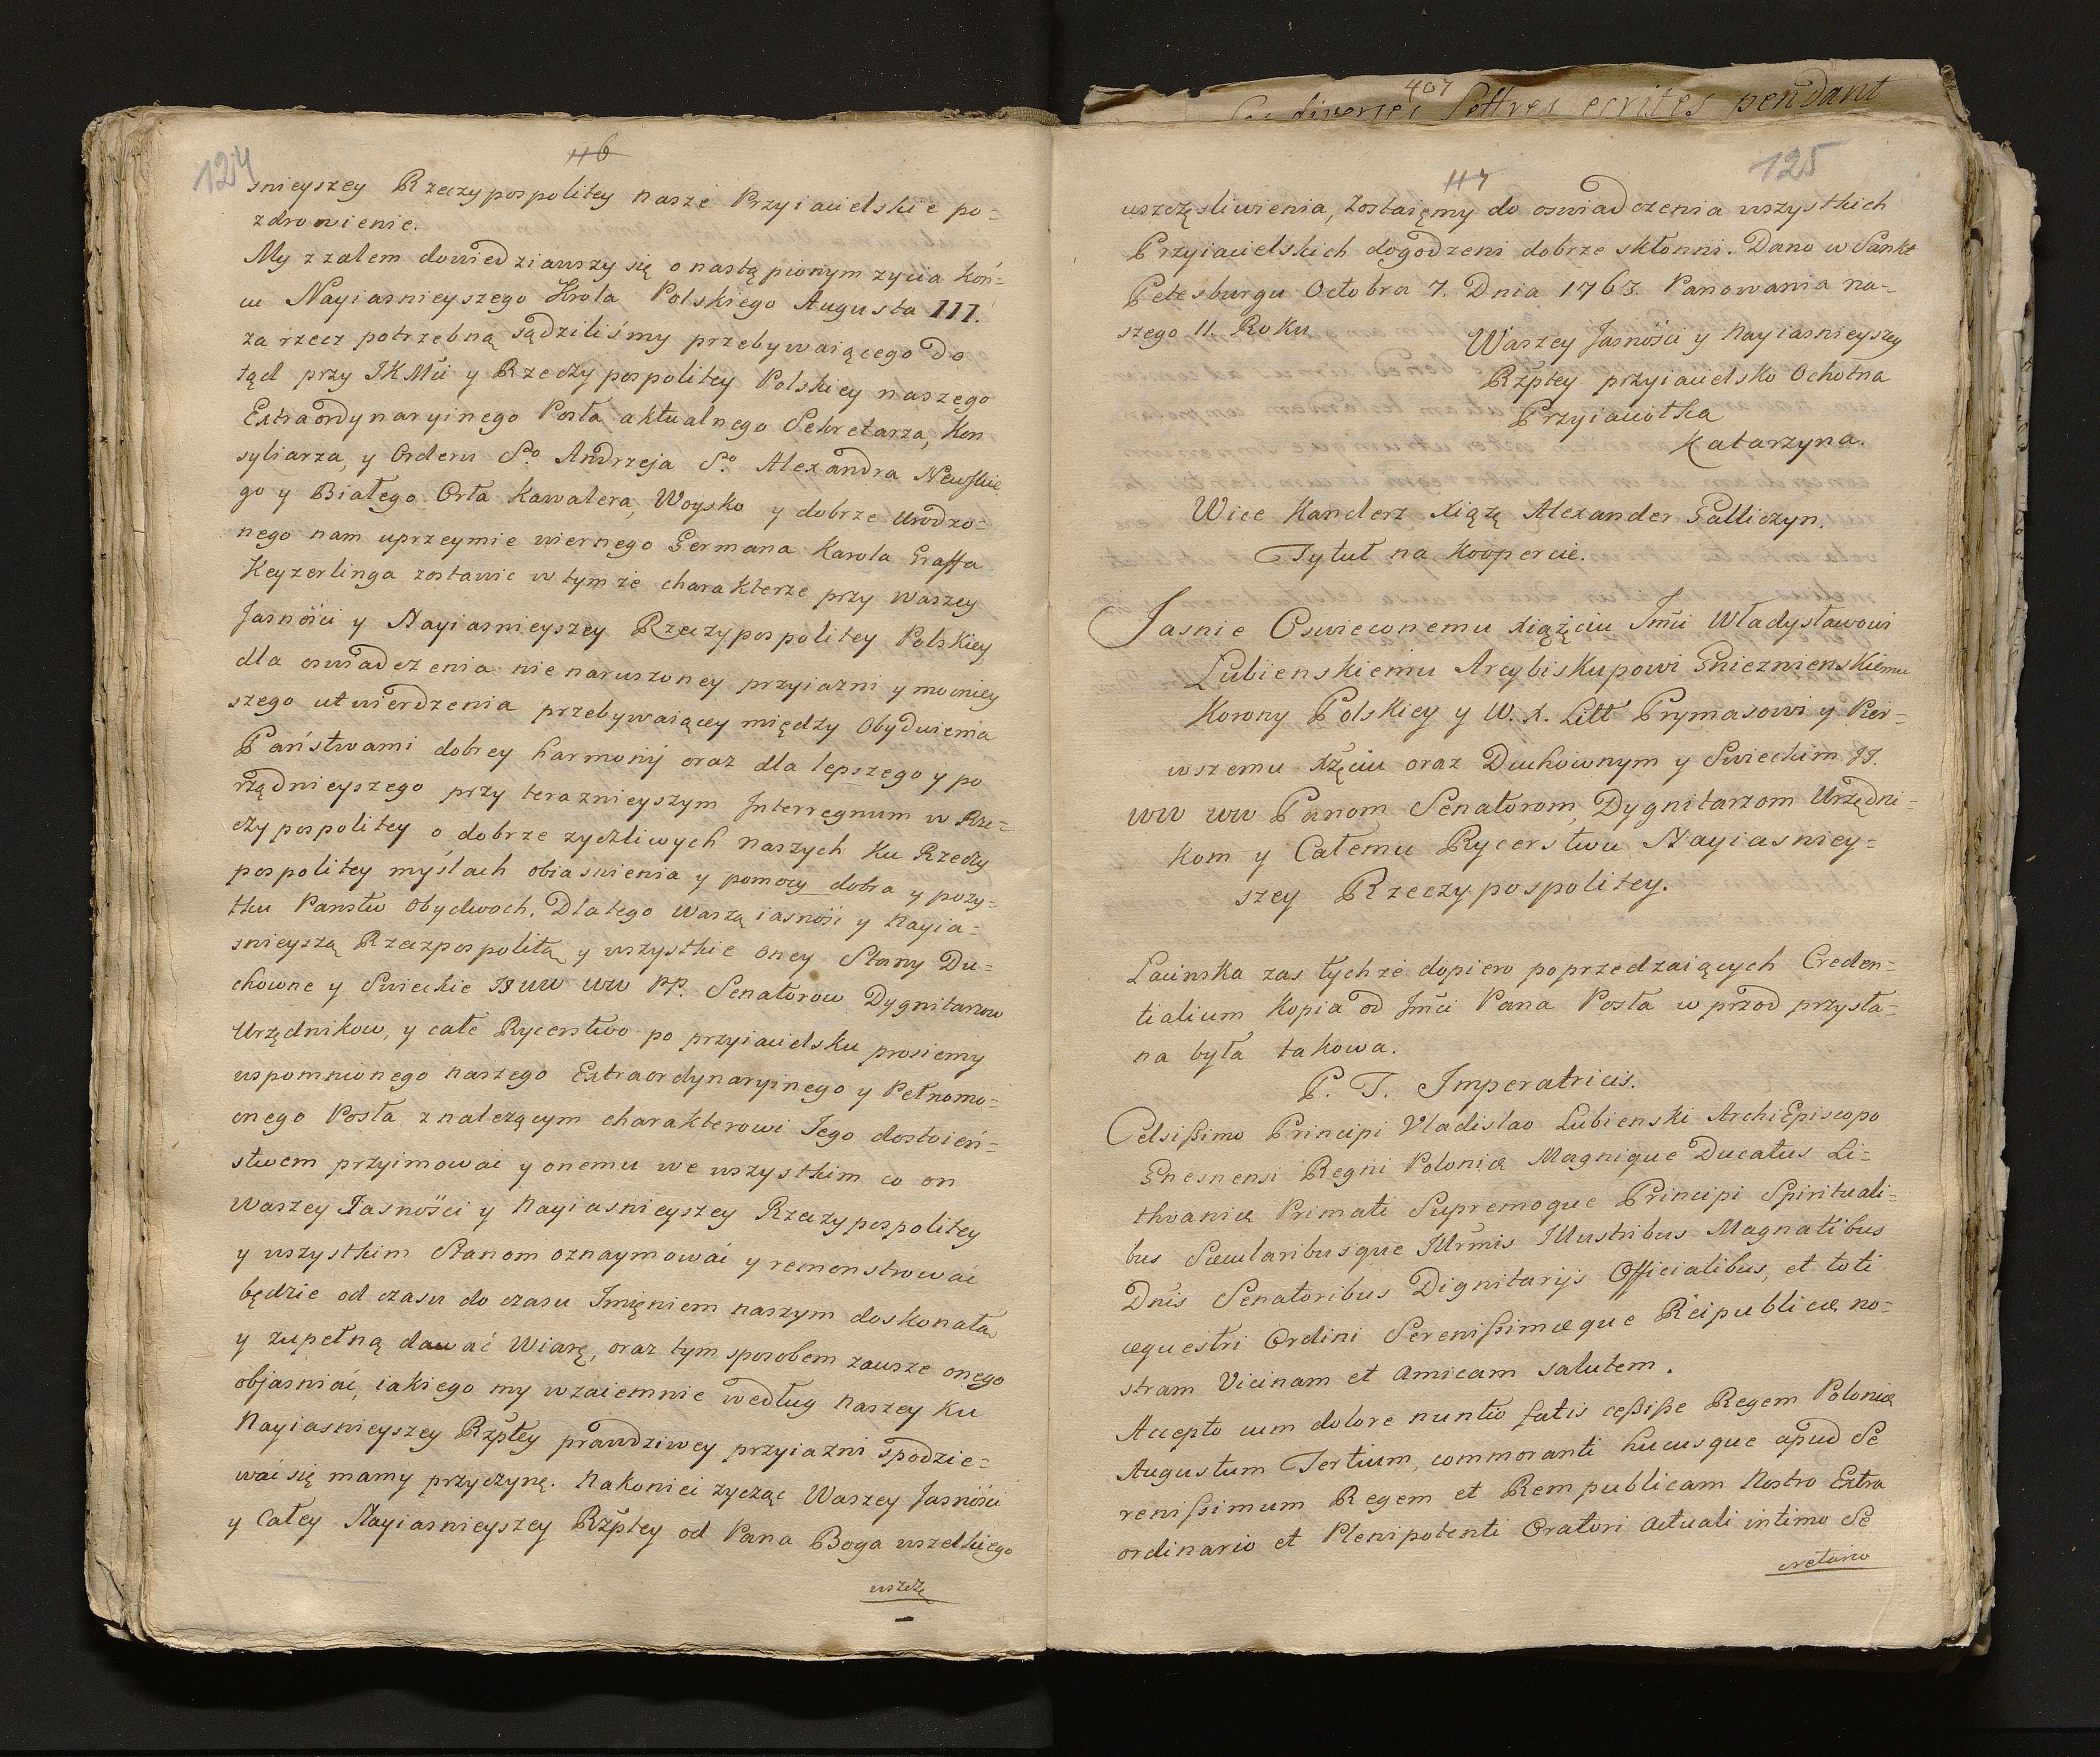 124
116
snieyszey Rzeczypospolitey nasze Przyiacielskie po=
zdrowienie.
My z zalem dowiedziawszy się o nastąpionym zycia koń=
cu Nayiasnieyszego Krola Polskiego Augusta III.
za rzecz potrzębną sądziliśmy przebywaiącego do
tąd przy JKMci y Rzeczypospolitey Polskiey naszego
Extraordynaryinego Posła aktualnego Sekretarza, Kon
syliarza, y Orderu So. Andrzeja So. Alexandra Newskie
go y Białego Orła Kawalera, Woysko y dobrze Urodzo=
nego nam uprzeymie wiernego Germana Karola Graffa
Keyzerlinga zostawic w tymże charakterze przy Waszey
Jasności y Nayiasnieyszey Rzeczypospolitey Polskiey
dla oswiadczenia nienaruszoney przyiazni y mocniey
szego utwierdzenia przebywaiącey między Obydwiema
Państwami dobrey harmonij oraz dla lepszego y po
rządnieyszego przy teraznieyszym Interregnum w Rze=
czypospolitey o dobrze zyczliwych naszych ku Rzeczy
pospolitey myślach obiasnienia y pomocy dobra y pozy=
tku Panstw Obydwoch. Dlatego Waszą iasność y Nayia=
snieyszą Rzeczpospolitą y wszystkie oney Stany Du=
chowne y Swieckie JJ WW WW PP. Senatorow Dygnitarzow
Urzędnikow, y całe Rycerstwo po przyiacielsku prosiemy
wspomnionego naszego Extraordynaryinego y Pełnomo=
cnego Posła z nalezącym charakterowi Jego dostoień=
stwem przyimować y onemu we wszystkim co on
Waszey Jasności y Nayiasnieyszey Rzeczypospolitey
y wszystkim Stanom oznaymować y remonstrować
będzie od czasu do czasu Imięniem naszym doskonałą
y zupełną dawać Wiarę, oraz tym sposobem zawsze onego
objasniać, iakiego my wzaiemnie według naszey ku
Nayiasnieyszey Rzptey prawdziwey przyiazni spodzie=
wać się mamy przyczynę. Nakoniec zycząc Waszey Jasności
y Całey Nayiasnieyszey Rzptey od Pana Boga wszelkiego
uszczę
407
diverses Lettres ecrites pendant
117
125
uszczęsliwienia, zostaięmy do oswiadczenia wszystkich
Przyiacielskich dogodzeni dobrze skłonni. Dano w Sankt
Petesburgu Octobra 7. Dnia 1763. Panowania na-
szego II. Roku
Waszey Jasności y Nayiasnieyszey
Rzptey przyiacielsko Ochotna
Przyiaciołka
Katarzyna.
Wice Kanclerz Xiążę Alexander Galliczyn.
Tytuł na koopercie.
Jasnie Oswieconemu Xiążęciu Jmci Władysławowi
Lubienskiemu Arcybiskupowi Gnieznienskiemu
Korony Polskiey y W. X. Litt Prymasowi y Pier=
wszemu Xzęciu oraz Duchownym y Swieckim JJ.
WW WW Panom Senatorom, Dygnitarzom Urzędni=
kom y Całemu Rycerstwu Nayiasniey=
szey Rzeczypospolitey.
Łacinska zas tychże dopiero poprzedzaiących Creden=
tialium Kopia od Jmci Pana Posła wprzod przysła=
na była takowa.
P. T. Imperatricis.
Celsissimo Principi Vladislao Lubienski ArchiEpiscopo
Gnesnensi Regni Poloniæ Magnique Ducatus Li=
thvaniæ Primati Supremoque Principi Spirituali=
bus Sæcularibusque Illrmis Illustribus Magnatibus
Dnis Senatoribus Dignitarijs Officialibus, et toti
æquestri Ordini Serenissimæque Reipublicæ no=
stram Vicinam et amicam salutem.
Accepto cum dolore nuntio fatis cessisse Regem Poloniæ
Augustum Tertium, commoranti hucusque apud Se
renissimum Regem et Rempublicam Nostro Extra
ordinario et Plenipotenti Oratori actuali intimo Se
cretario